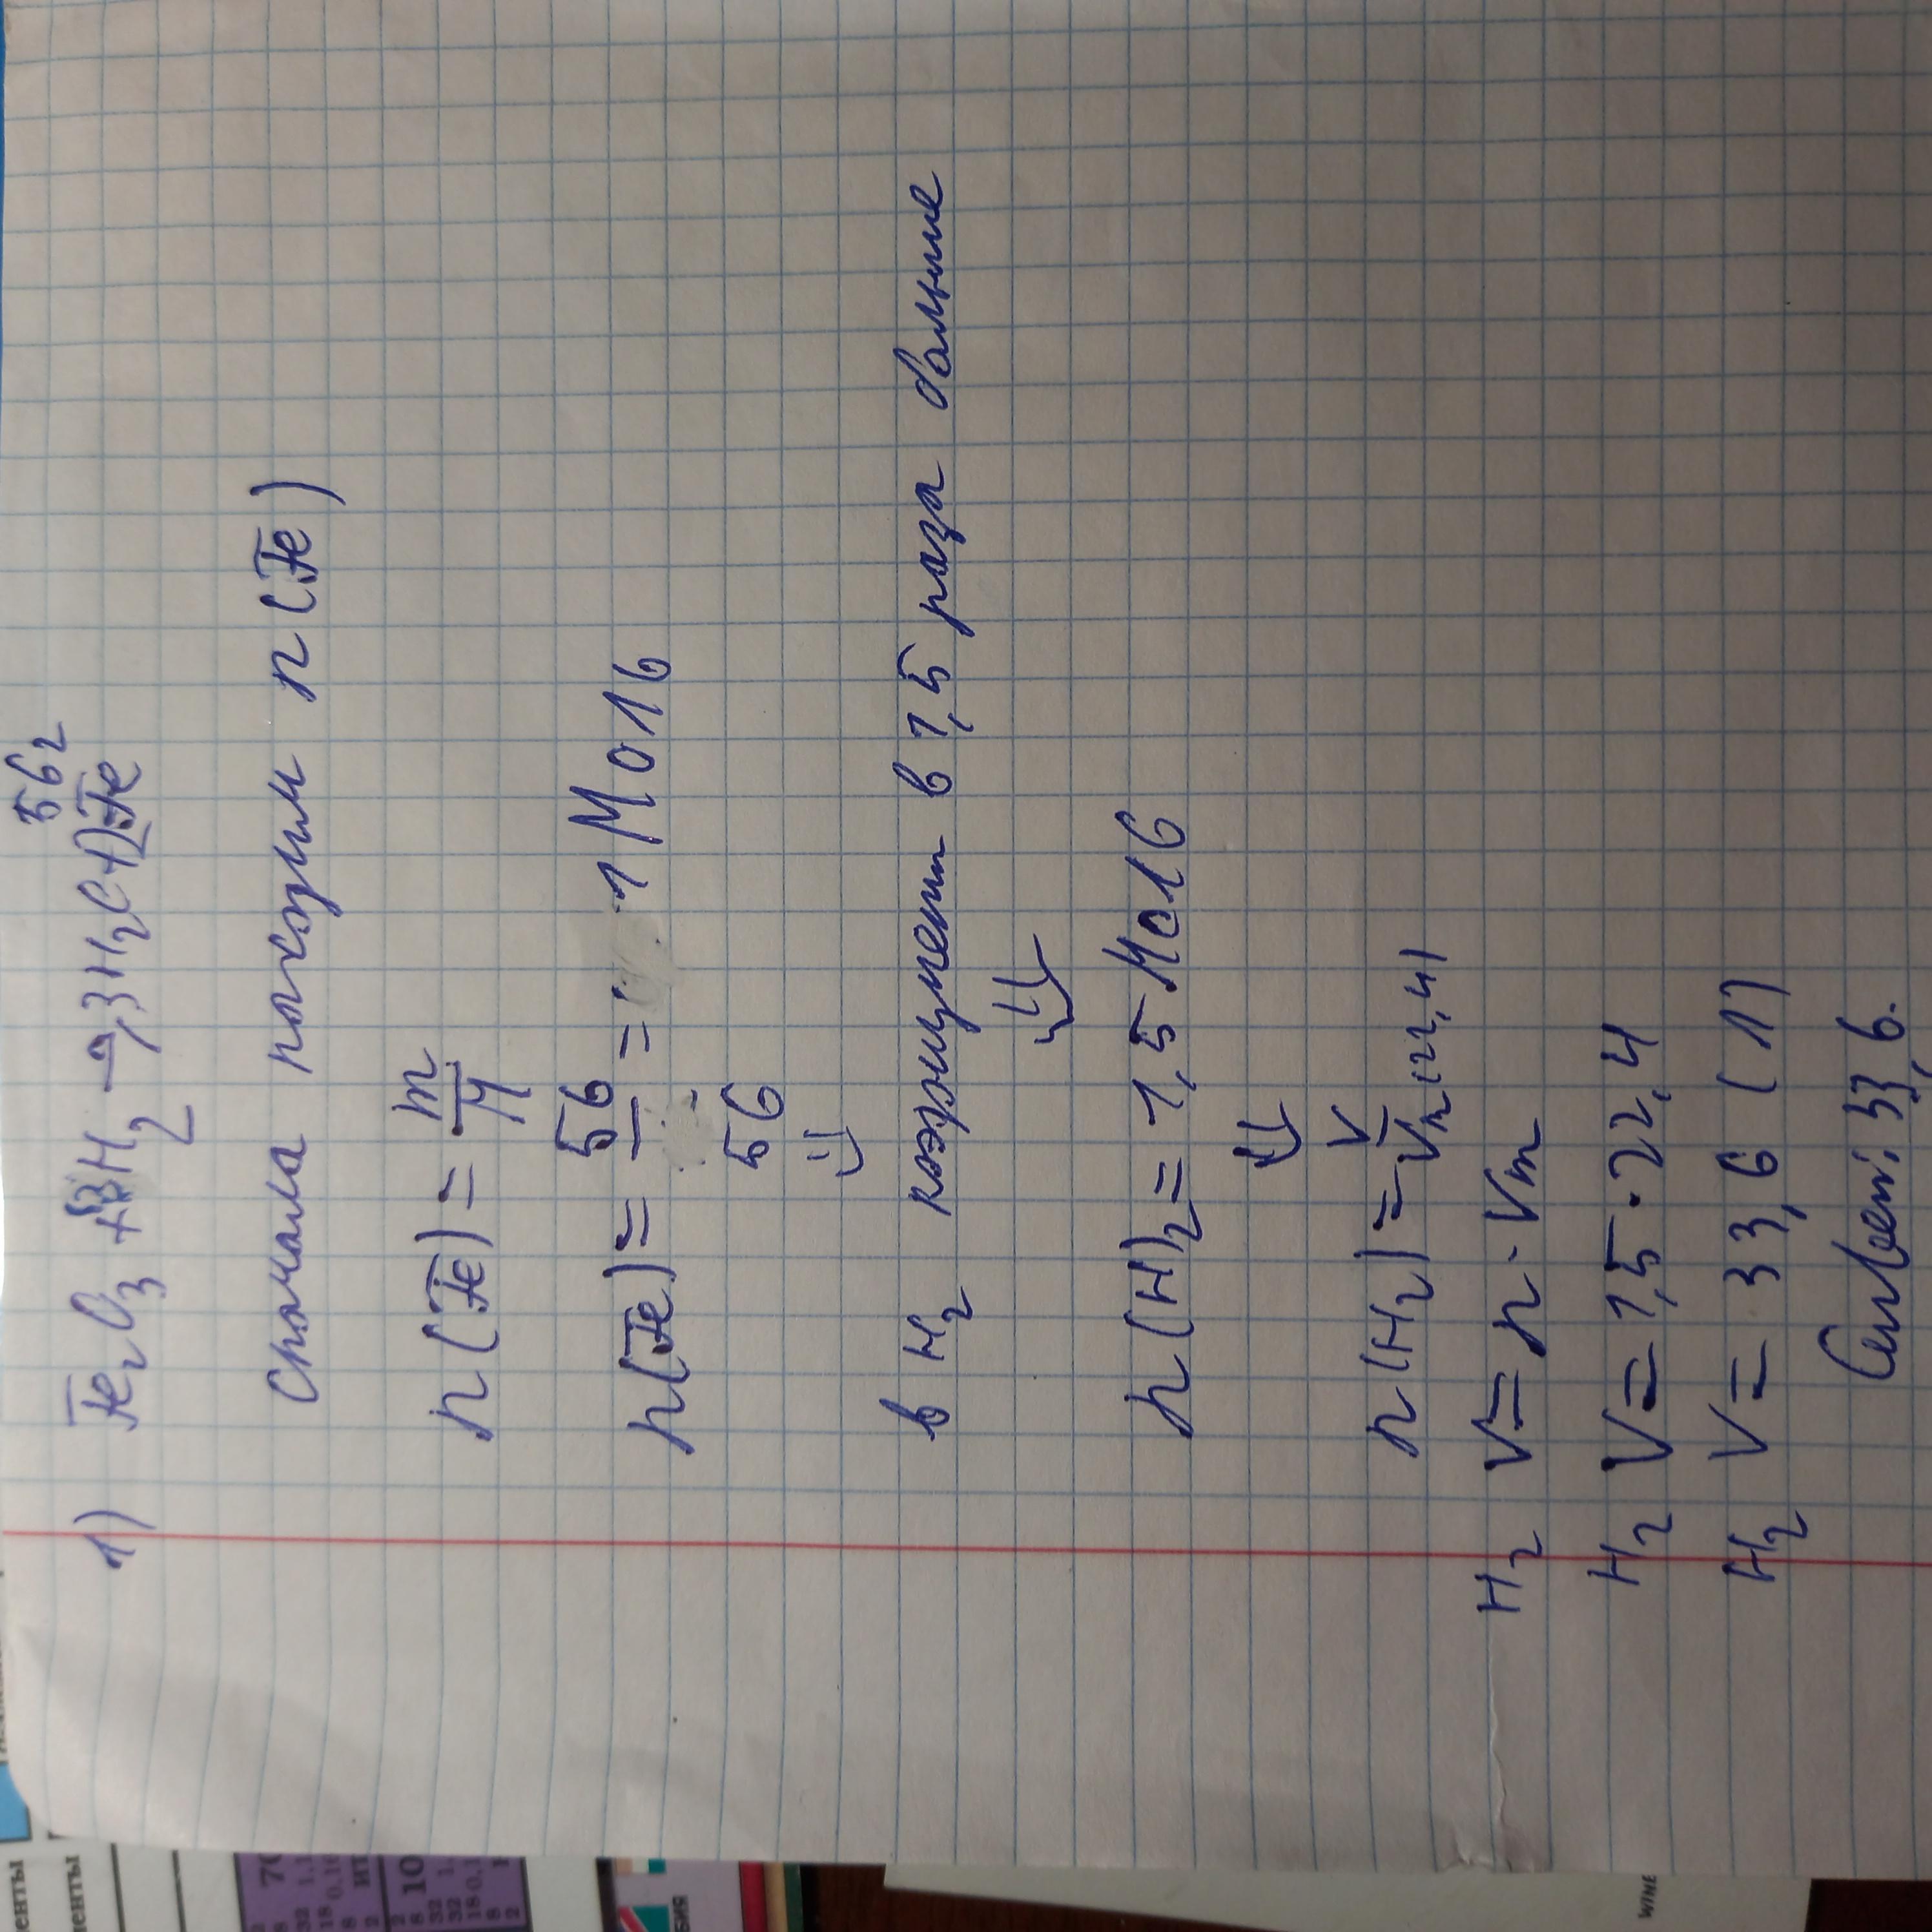 1) Fe2O3 + 3H2 → 3H2O + 2Fe
56г
Сначала находим n(Fe)
n(Fe) = m/M
n(Fe) = 56/56 = 1 Моль
⇓
в H2 коэфицент в 1,5 раза больше
⇓
n(H)2 = 1,5 Моль
⇓
n(H2) = V/Vm(22,4)
H2 V = n · Vm
H2 V = 1,5 · 22,4
H2 V = 33,6 (л)
Ответ: 33,6.
БИЯ
WINE
70
10